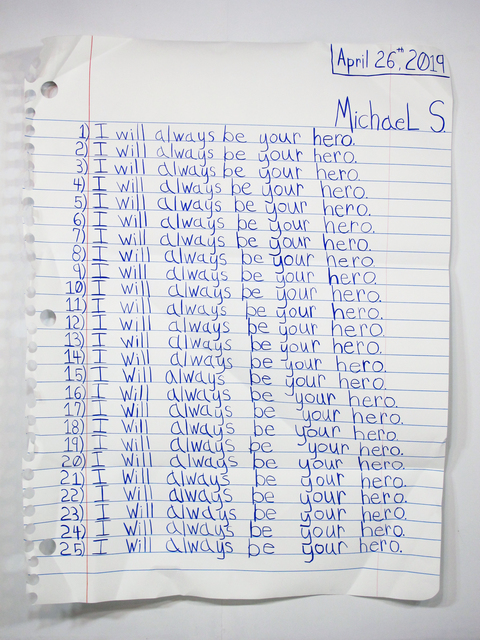 April 26th, 2019
MichaeL S.
1) I will always be your hero.
2) I will always be your hero.
3) I will always be your hero.
4) I will always be your hero.
5) I will always be your hero.
6) I will always be your hero.
7) I will always be your hero.
8) I will always be your hero.
9) I will always be your hero.
10) I will always be your hero.
11) I will always be your hero.
12) I will always be your hero.
13) I will always be your hero.
14) I will always be your hero.
15) I will always be your hero.
16) I will always be your hero.
17) I will always be your hero.
18) I will always be your hero.
19) I will always be your hero.
20) I will always be your hero.
21) I will always be your hero.
22) I will always be your hero.
23) I will always be your hero.
24) I will always be your hero.
25) I will always be your hero.